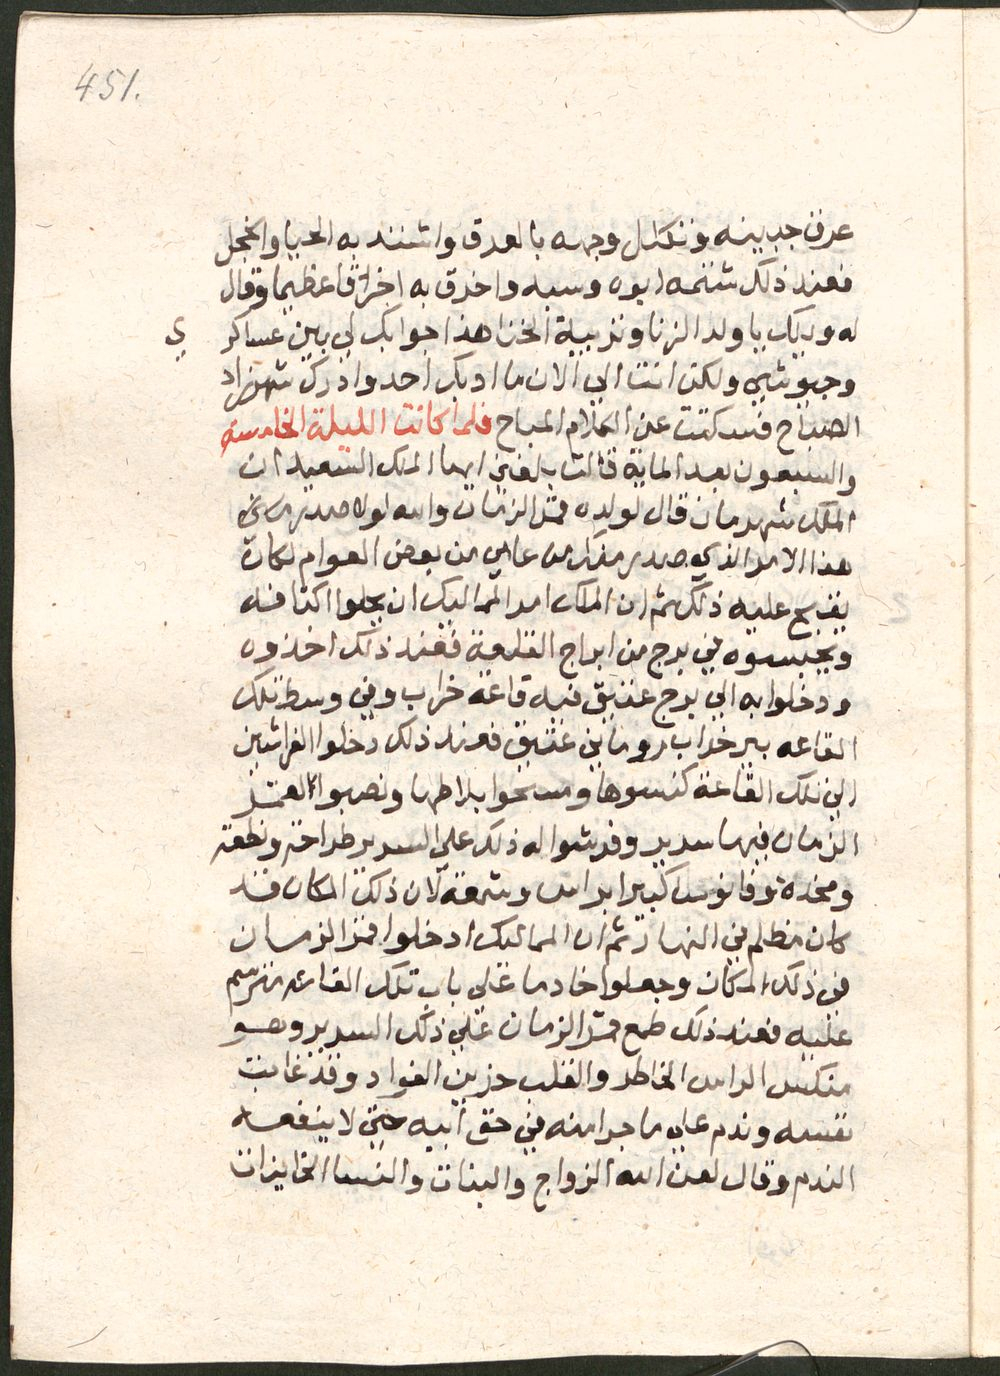 451.
عرق جبينه وتكلل وجهه بالعرق واشتد به الحيا والخجل
فعند ذلك شتمه ابوه وسبه واخرق به اخراقا عظيما وقال
له ويلك يا ولد الزنا وتربية الخنا هذا جوابك لي بين عساكر
ي
وجيوشي ولكن انت الي الان ما ادبك احد وادرك شهرزاد
الصباح فسكتت عن الكلام المباح فلما كانت الليلة الخامسة
والسبعون بعد الماية قالت بلغني ايها الملك السعيد ان
الملك شهرمان قال لولده قمر الزمان والله لولا صدر مني
هذا الامر الذي صدر منك من عامي من بعض العوام لكان
يقبح عليه ذلك ثم ان الملك امر المماليك ان يحلوا اكتافه
ويحبسوه في برج من ابراج القلعة فعند ذلك اخذوه
ودخلوا به الي برج عتيق فيه قاعة خراب وفي وسط تلك
القاعه بير خراب روماني عتيق فعند ذلك دخلوا الفراشين
الي تلك القاعة كنسوها ومسحوا بلاطها ونصبوا لقمر
الزمان فيها سرير وفرشوا له ذلك علي السرير طراحة ونطعة
ومخدة وفانوس كبير ابراس وشمعة لان ذلك المكان قد
كان مظلم في النهار ثم ان المماليك ادخلوا قمر الزمان
في ذلك المكان وجعلوا خادما علي باب تلك القاعه مترسم
عليه فعند ذلك طلع قمر الزمان علي ذلك السرير وهو
منكس الراس الخاطر والقلب حزين الفواد وقد عاتب
نفسه وندم علي ما جرا منه في حق ابيه حتي لا ينفعه
الندم وقال لعن الله الزواج والبنات والنسا الخاينات